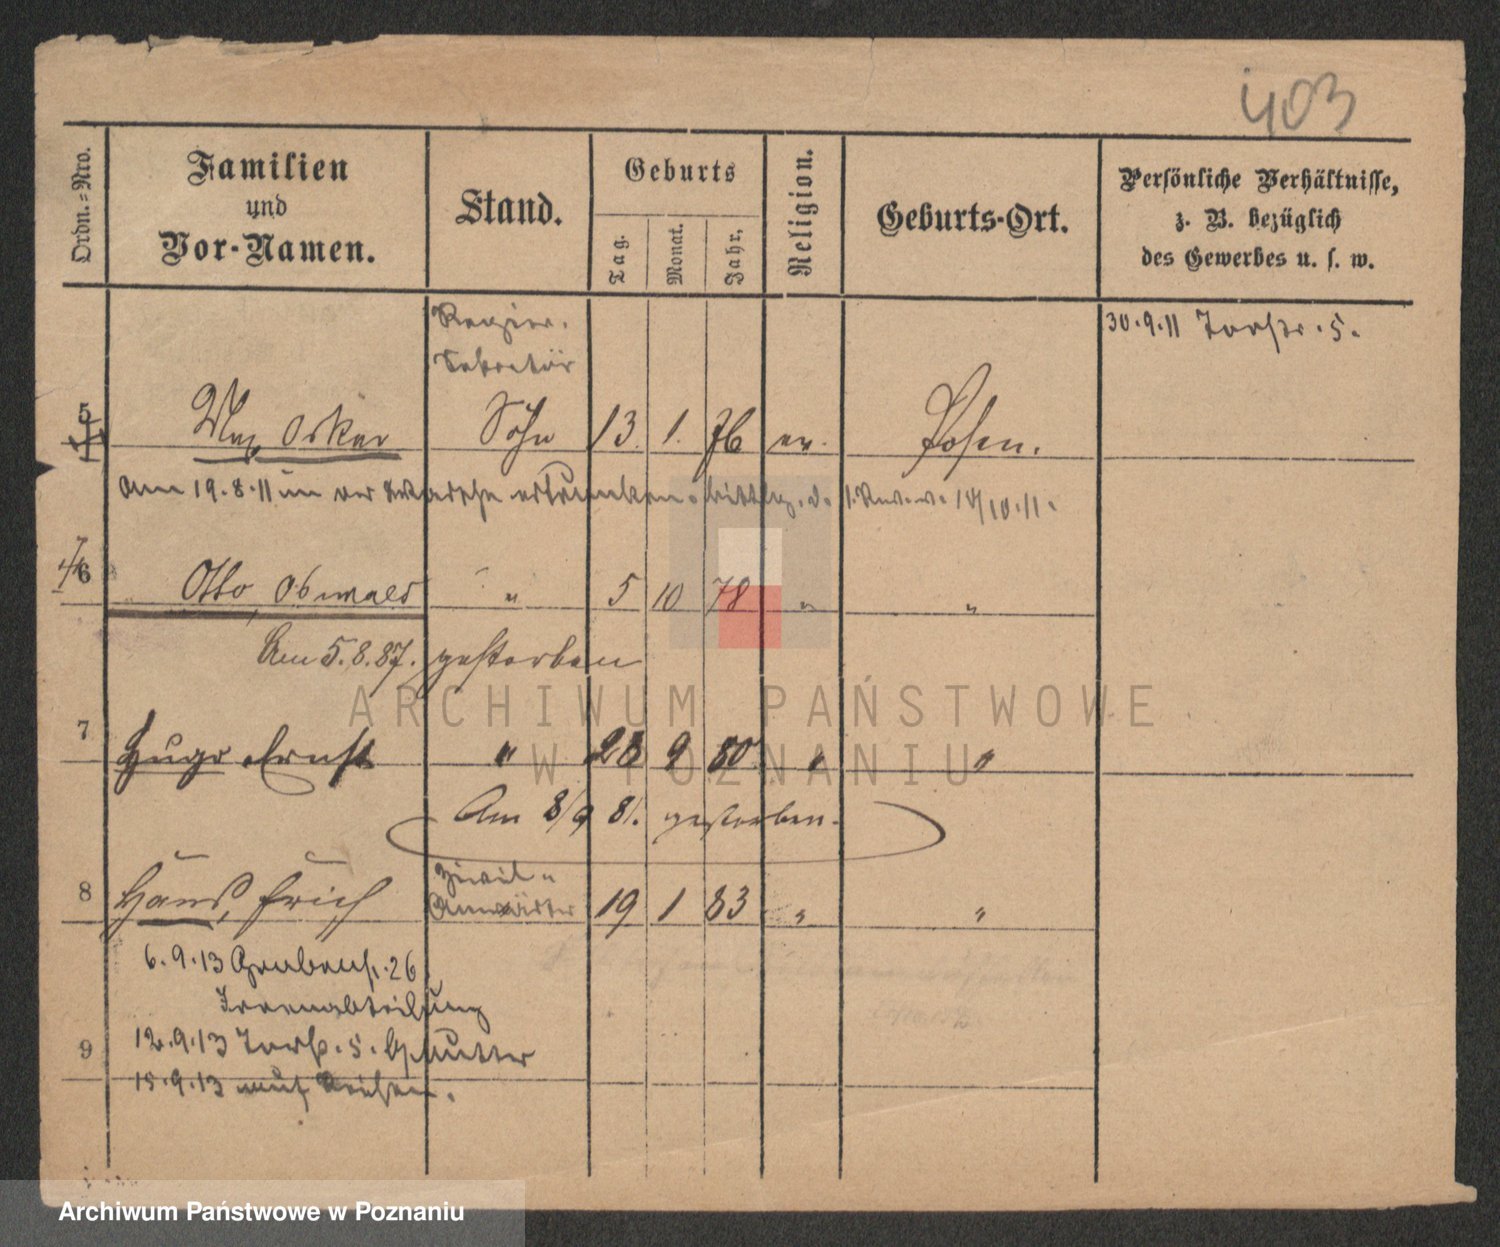 403
Ordn.=Nro.
Familien
und
Vor-Namen.
Stand.
Geburts
Tag.
Monat.
Jahr.
Religion.
Geburts-Ort.
Persönliche Verhältnisse,
z. B. bezüglich
des Gewerbes u. s. w.
Regier.
Sekretär
30.9.11 Torstr. 5.
5 Max Oskar Sohn 13. 1. 76 ev. Posen.
am 19.8.11 in der Warthe ertrunken. 14/10.11.
6 Otto, Oswald " 5 10 78 " "
Am 5.8.87. gestorben
7 Hugo Ernst " 28 9 80 " "
Am 8/9 81. gestorben.
8 Hans, Erich Zivil-
Anwärter 19 1 83 " "
6.9.13 Grabenstr. 26
Irrenabteilung
12.9.13 Torstr. 5. b/Mutter
9
15.9.13 auf Reisen.
ARCHIWUM PAŃSTWOWE
W POZNANIU
Archiwum Państwowe w Poznaniu